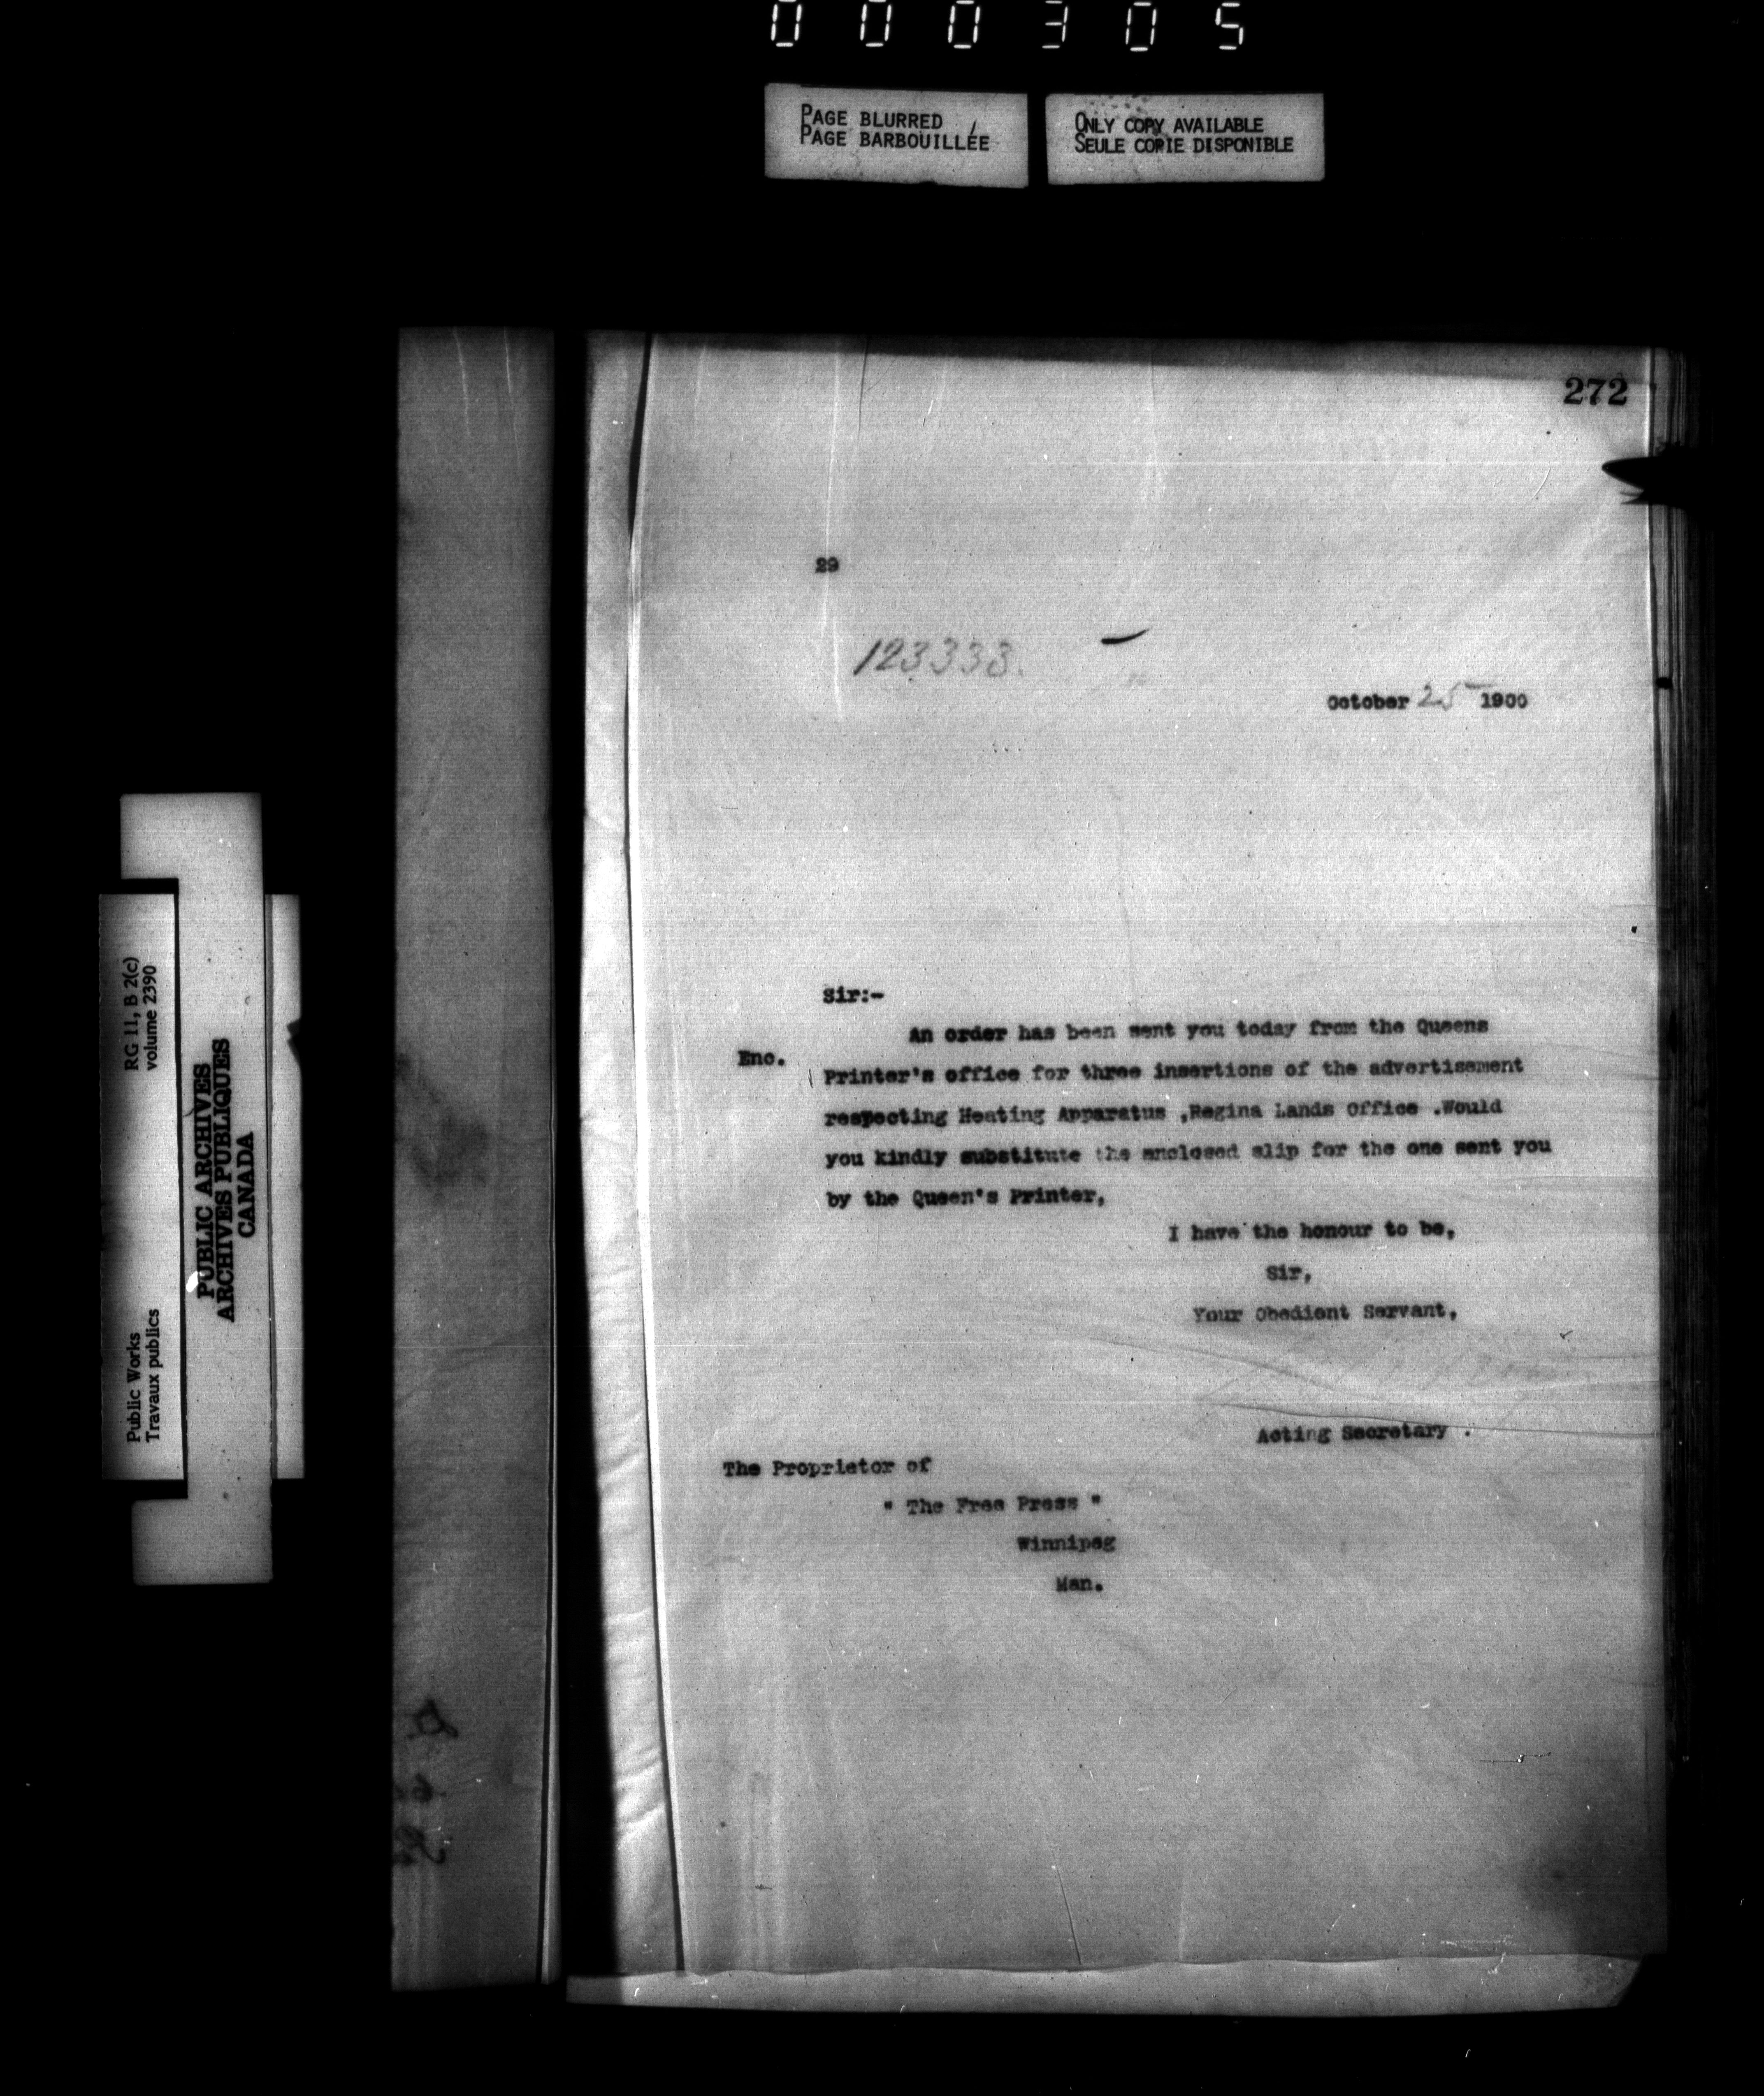 000305
PAGE BLURRED
PAGE BARBOUILLÉE
ONLY COPY AVAILABLE
SEULE COPIE DISPONIBLE
272
29
123333.
October 25 1900
Sir:-
An order has been sent you today from the Queens
Enc.
Printer's office for three insertions of the advertisement
respecting Heating Apparatus ,Regina Lands Office .Would
you kindly substitute the enclosed slip for the one sent you
by the Queen's Printer,
I have the honour to be,
Sir,
Your Obedient Servant,
Acting Secretary .
The Proprietor of
" The Free Press "
Winnipeg
Man.
RG 11, B 2(c)
volume 2390
PUBLIC ARCHIVES
ARCHIVES PUBLIQUES
CANADA
Public Works
Travaux publics